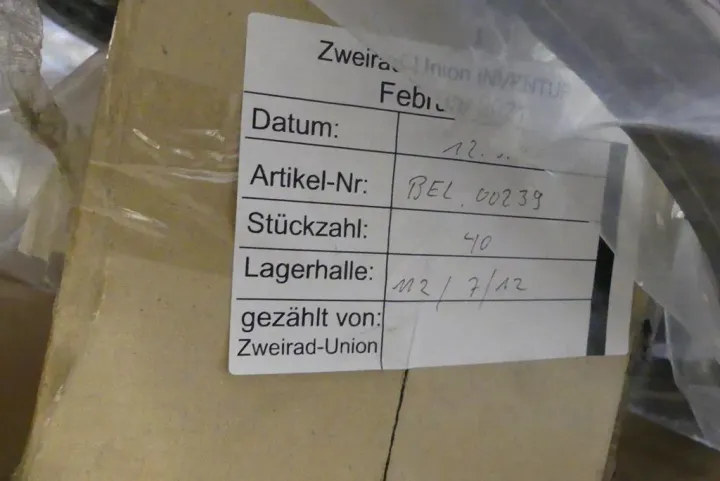 Zweirad-Union INVENTUR
Febru
Datum: 12.
Artikel-Nr: BEL.00239
Stückzahl: 40
Lagerhalle: 112/7/12
gezählt von:
Zweirad-Union